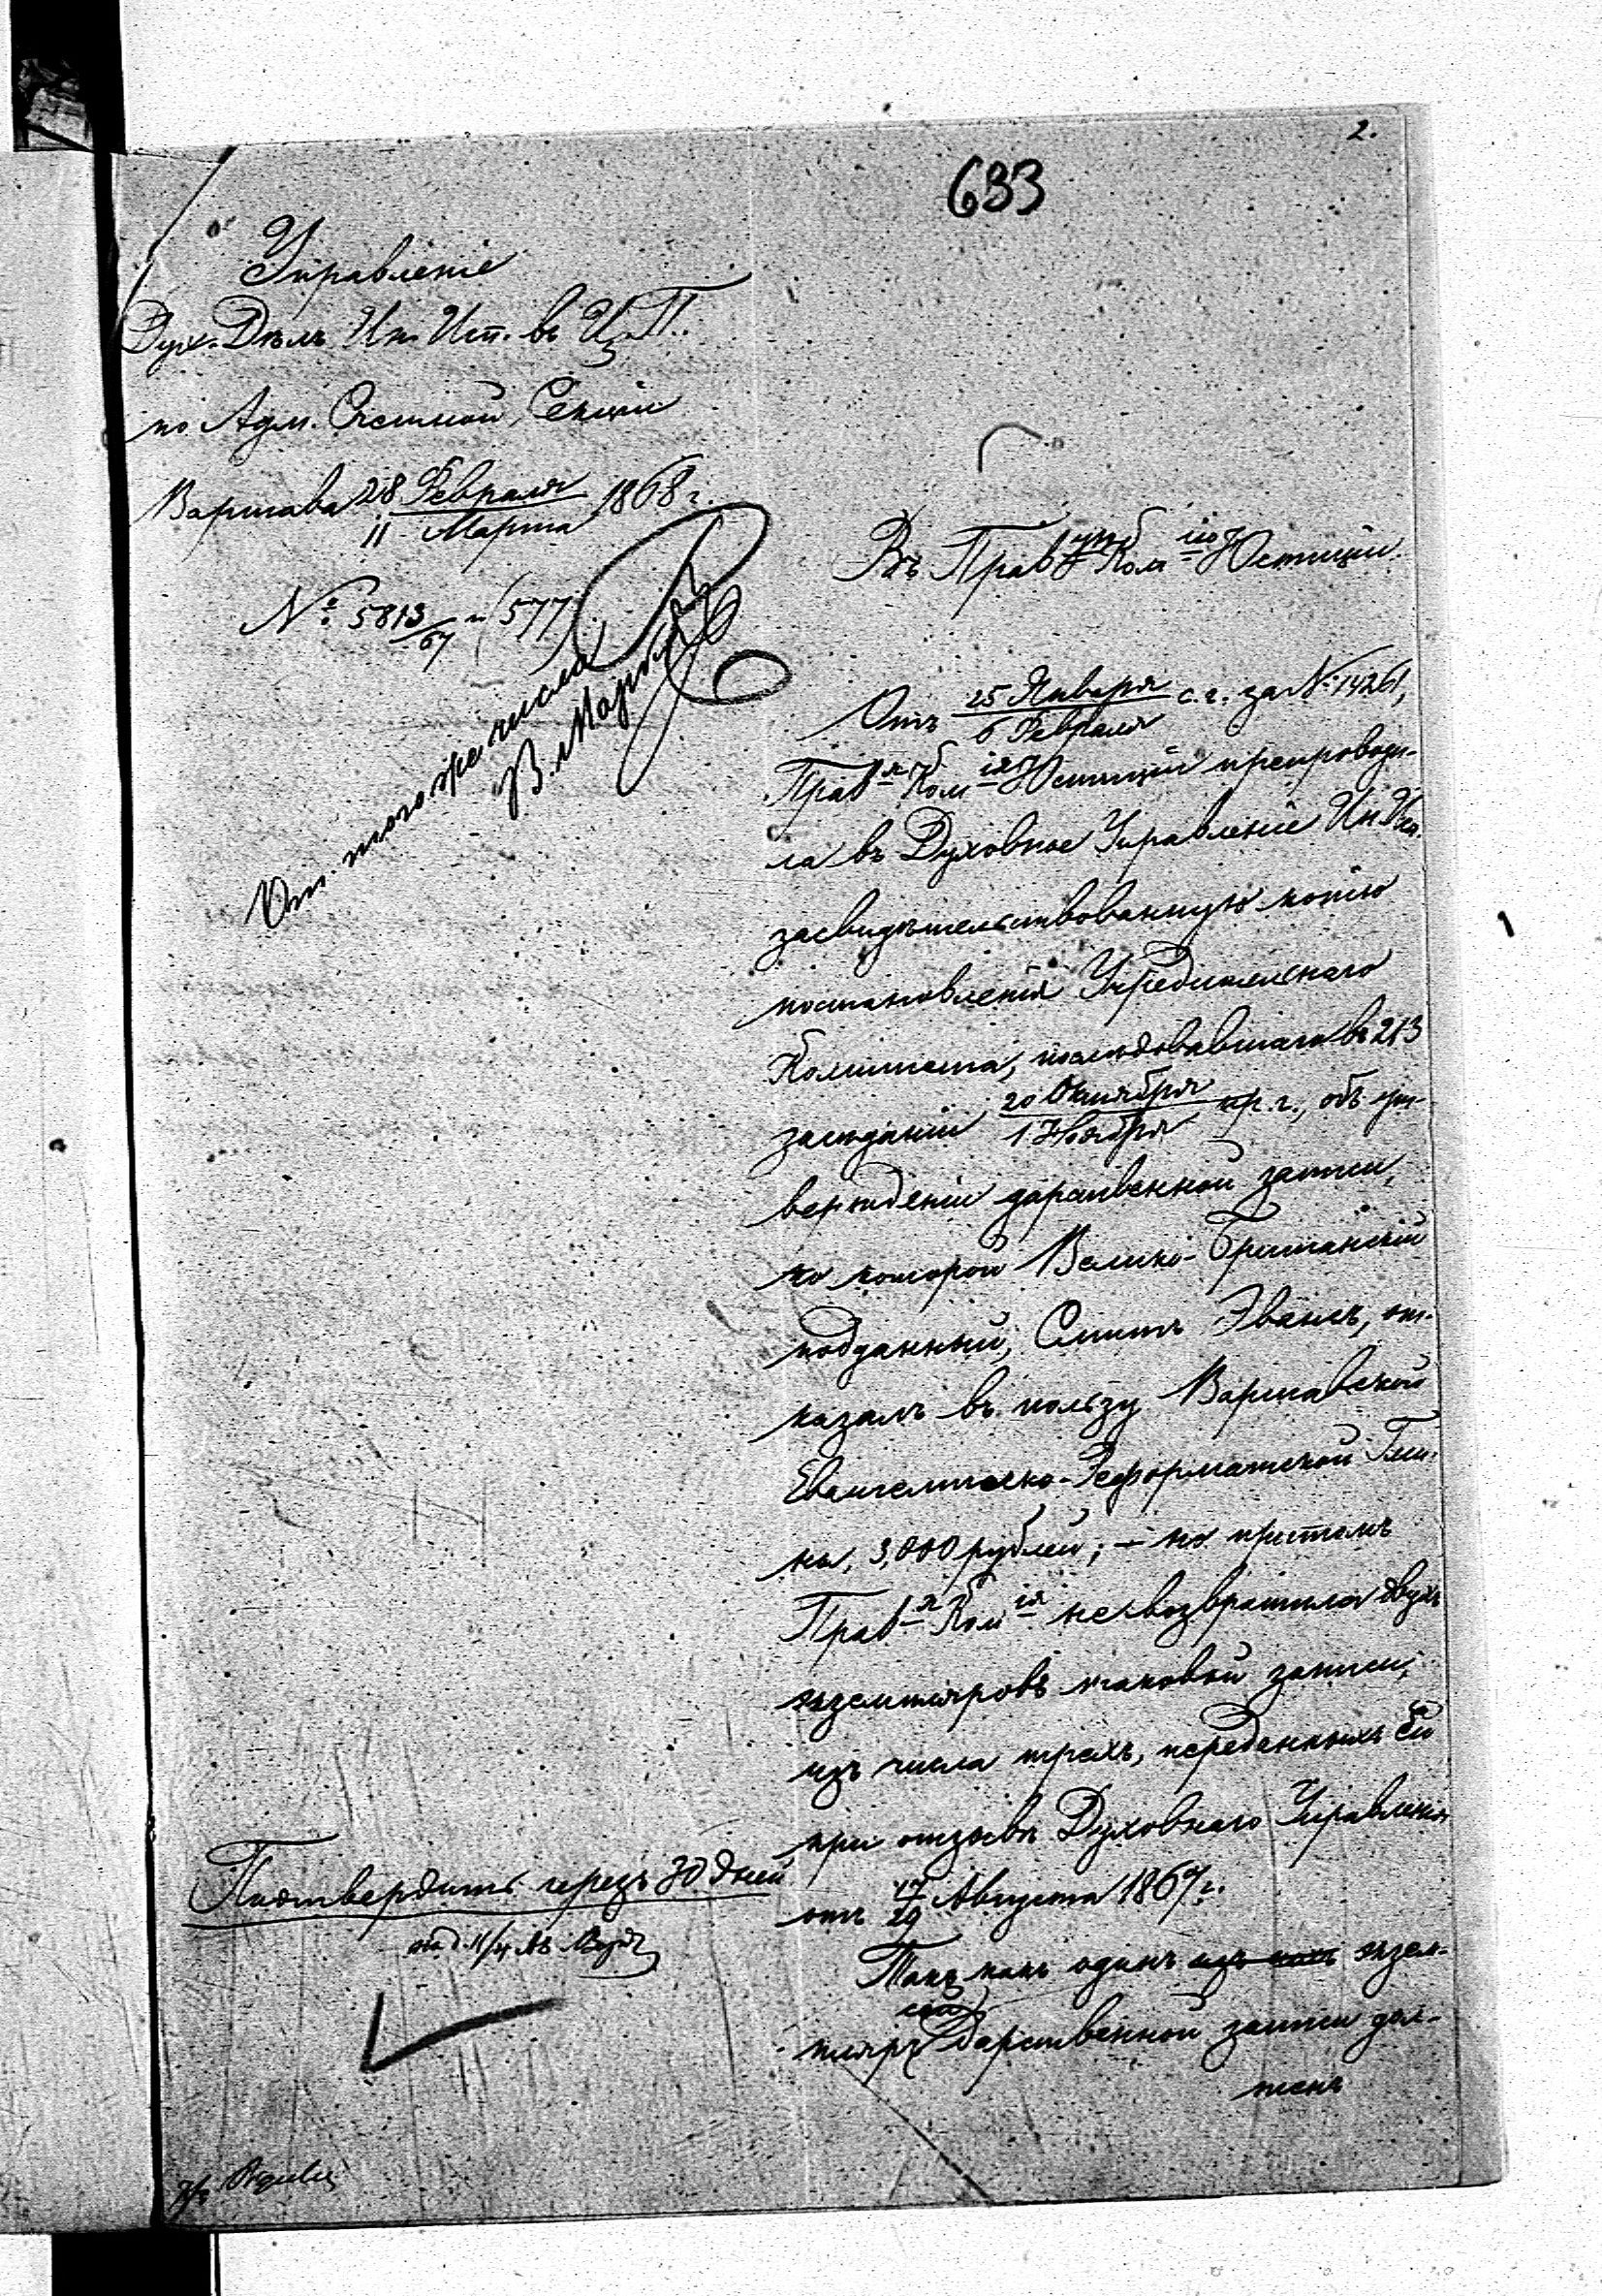 2.
633
Управленіе
Дух. Дѣлъ Ин. Исп. въ Ц. П.
по Адм. Счетной Секціи
Варшава 28 Февраля / 11 Марта 1868 г.
№ 5813/67 (577)
Въ Прав ую Ком ію Юстиціи.
От. того же числа
Отъ 25 Января / 6 Февраля с. г. за № 14261,
Прав я Ком ія Юстиціи препроводи-
ла въ Духовное Управленіе Ин. Исп.
засвидѣтельствованную копію
постановленія Учредительнаго
Комитета, послѣдовавшаго въ 213
засѣданіи 20 Октября / 1 Ноября пр. г., объ ут-
вержденіи дарственной записи,
по которой Велико-Британскій
подданный, Смитъ Эвансъ, от-
казалъ въ пользу Варшавской
Евангелическо-Реформатской Гми-
ны, 3,000 рублей; – но притомъ
Прав я Ком ія не возвратила двухъ
экземпляровъ таковой записи,
изъ числа трехъ, переданныхъ Ей
при отзывѣ Духовнаго Управленія
отъ 17/29 Августа 1867 г.
Такъ какъ одинъ изъ нихъ экзем-
пляръ сей дарственной записи дол-
женъ
Подтвердить черезъ 30 дней